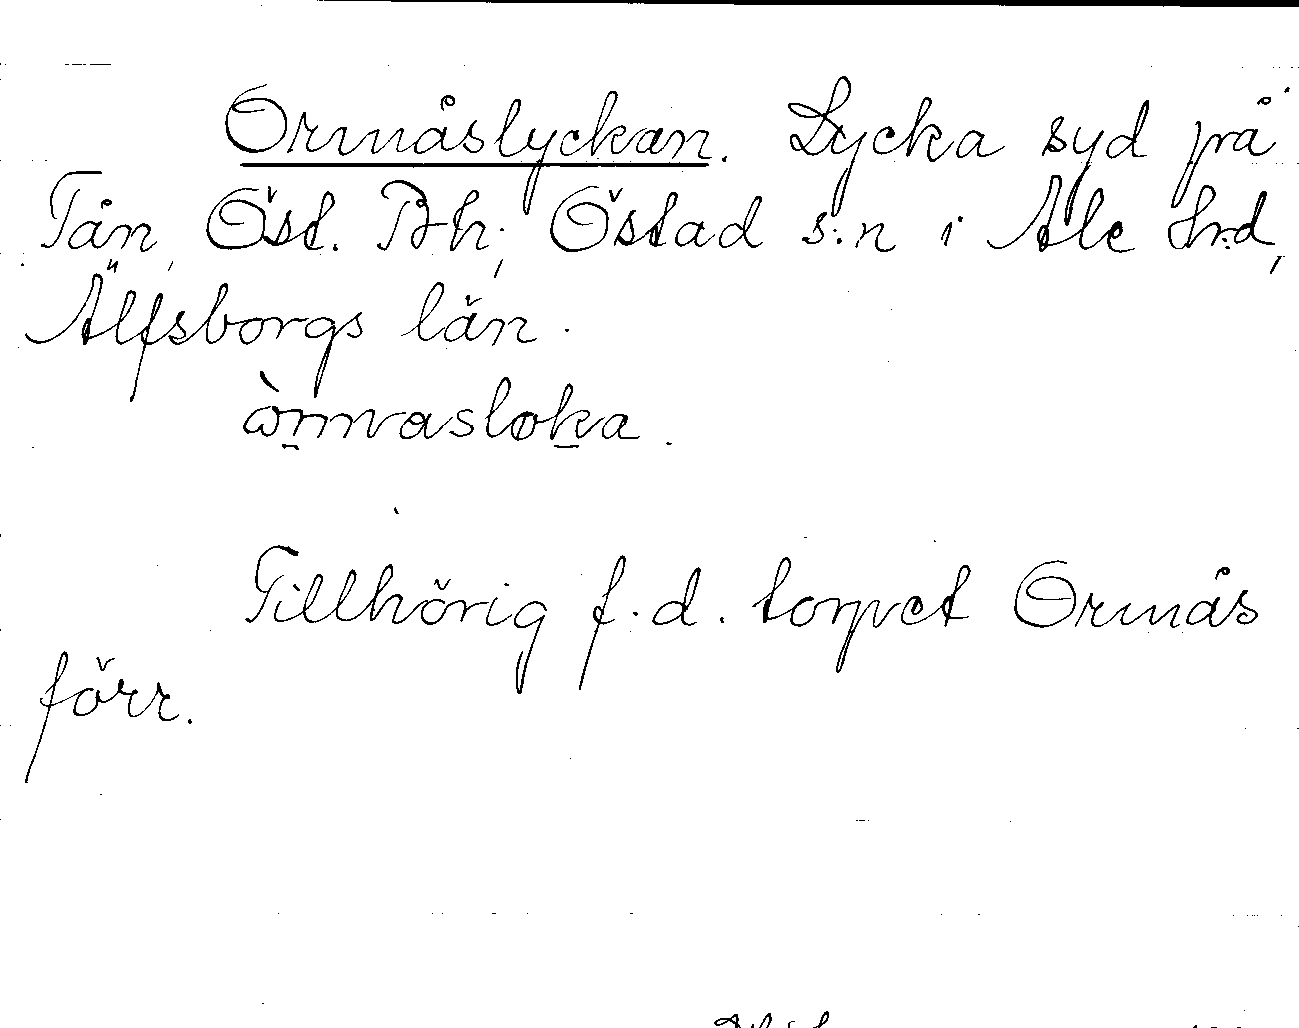 Ormåslyckan. Lycka syd på
Tån, Öst. Bh, Östad s:n i Ale hrd,
Älfsborgs län.
Tillhörig f.d. torpet Ormås
förr.